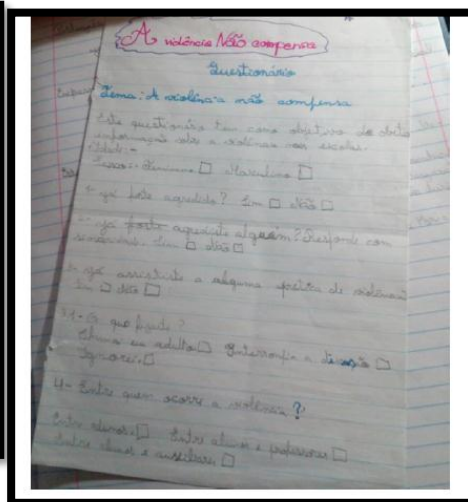 A violência Não compensa
Questionário
Tema: A violência não compensa
Este questionário tem como objetivo de obter
informação sobre a violência nas escolas.
Idade: -
Sexo: - Feminino □ Masculino □
1- Já foste agredido? Sim □ Não □
2- Já foste agressivo alguém? Responde com
sinceridade. Sim □ Não □
3- Já assististe a alguma prática de violência
Sim □ Não □
3.1- O que fizeste?
Chama um adulto □ Interrompia a □
Ignorei. □
4- Entre quem ocorre a violência?
Entre alunos. □ Entre alunos e professores □
Entre alunos e auxiliares □